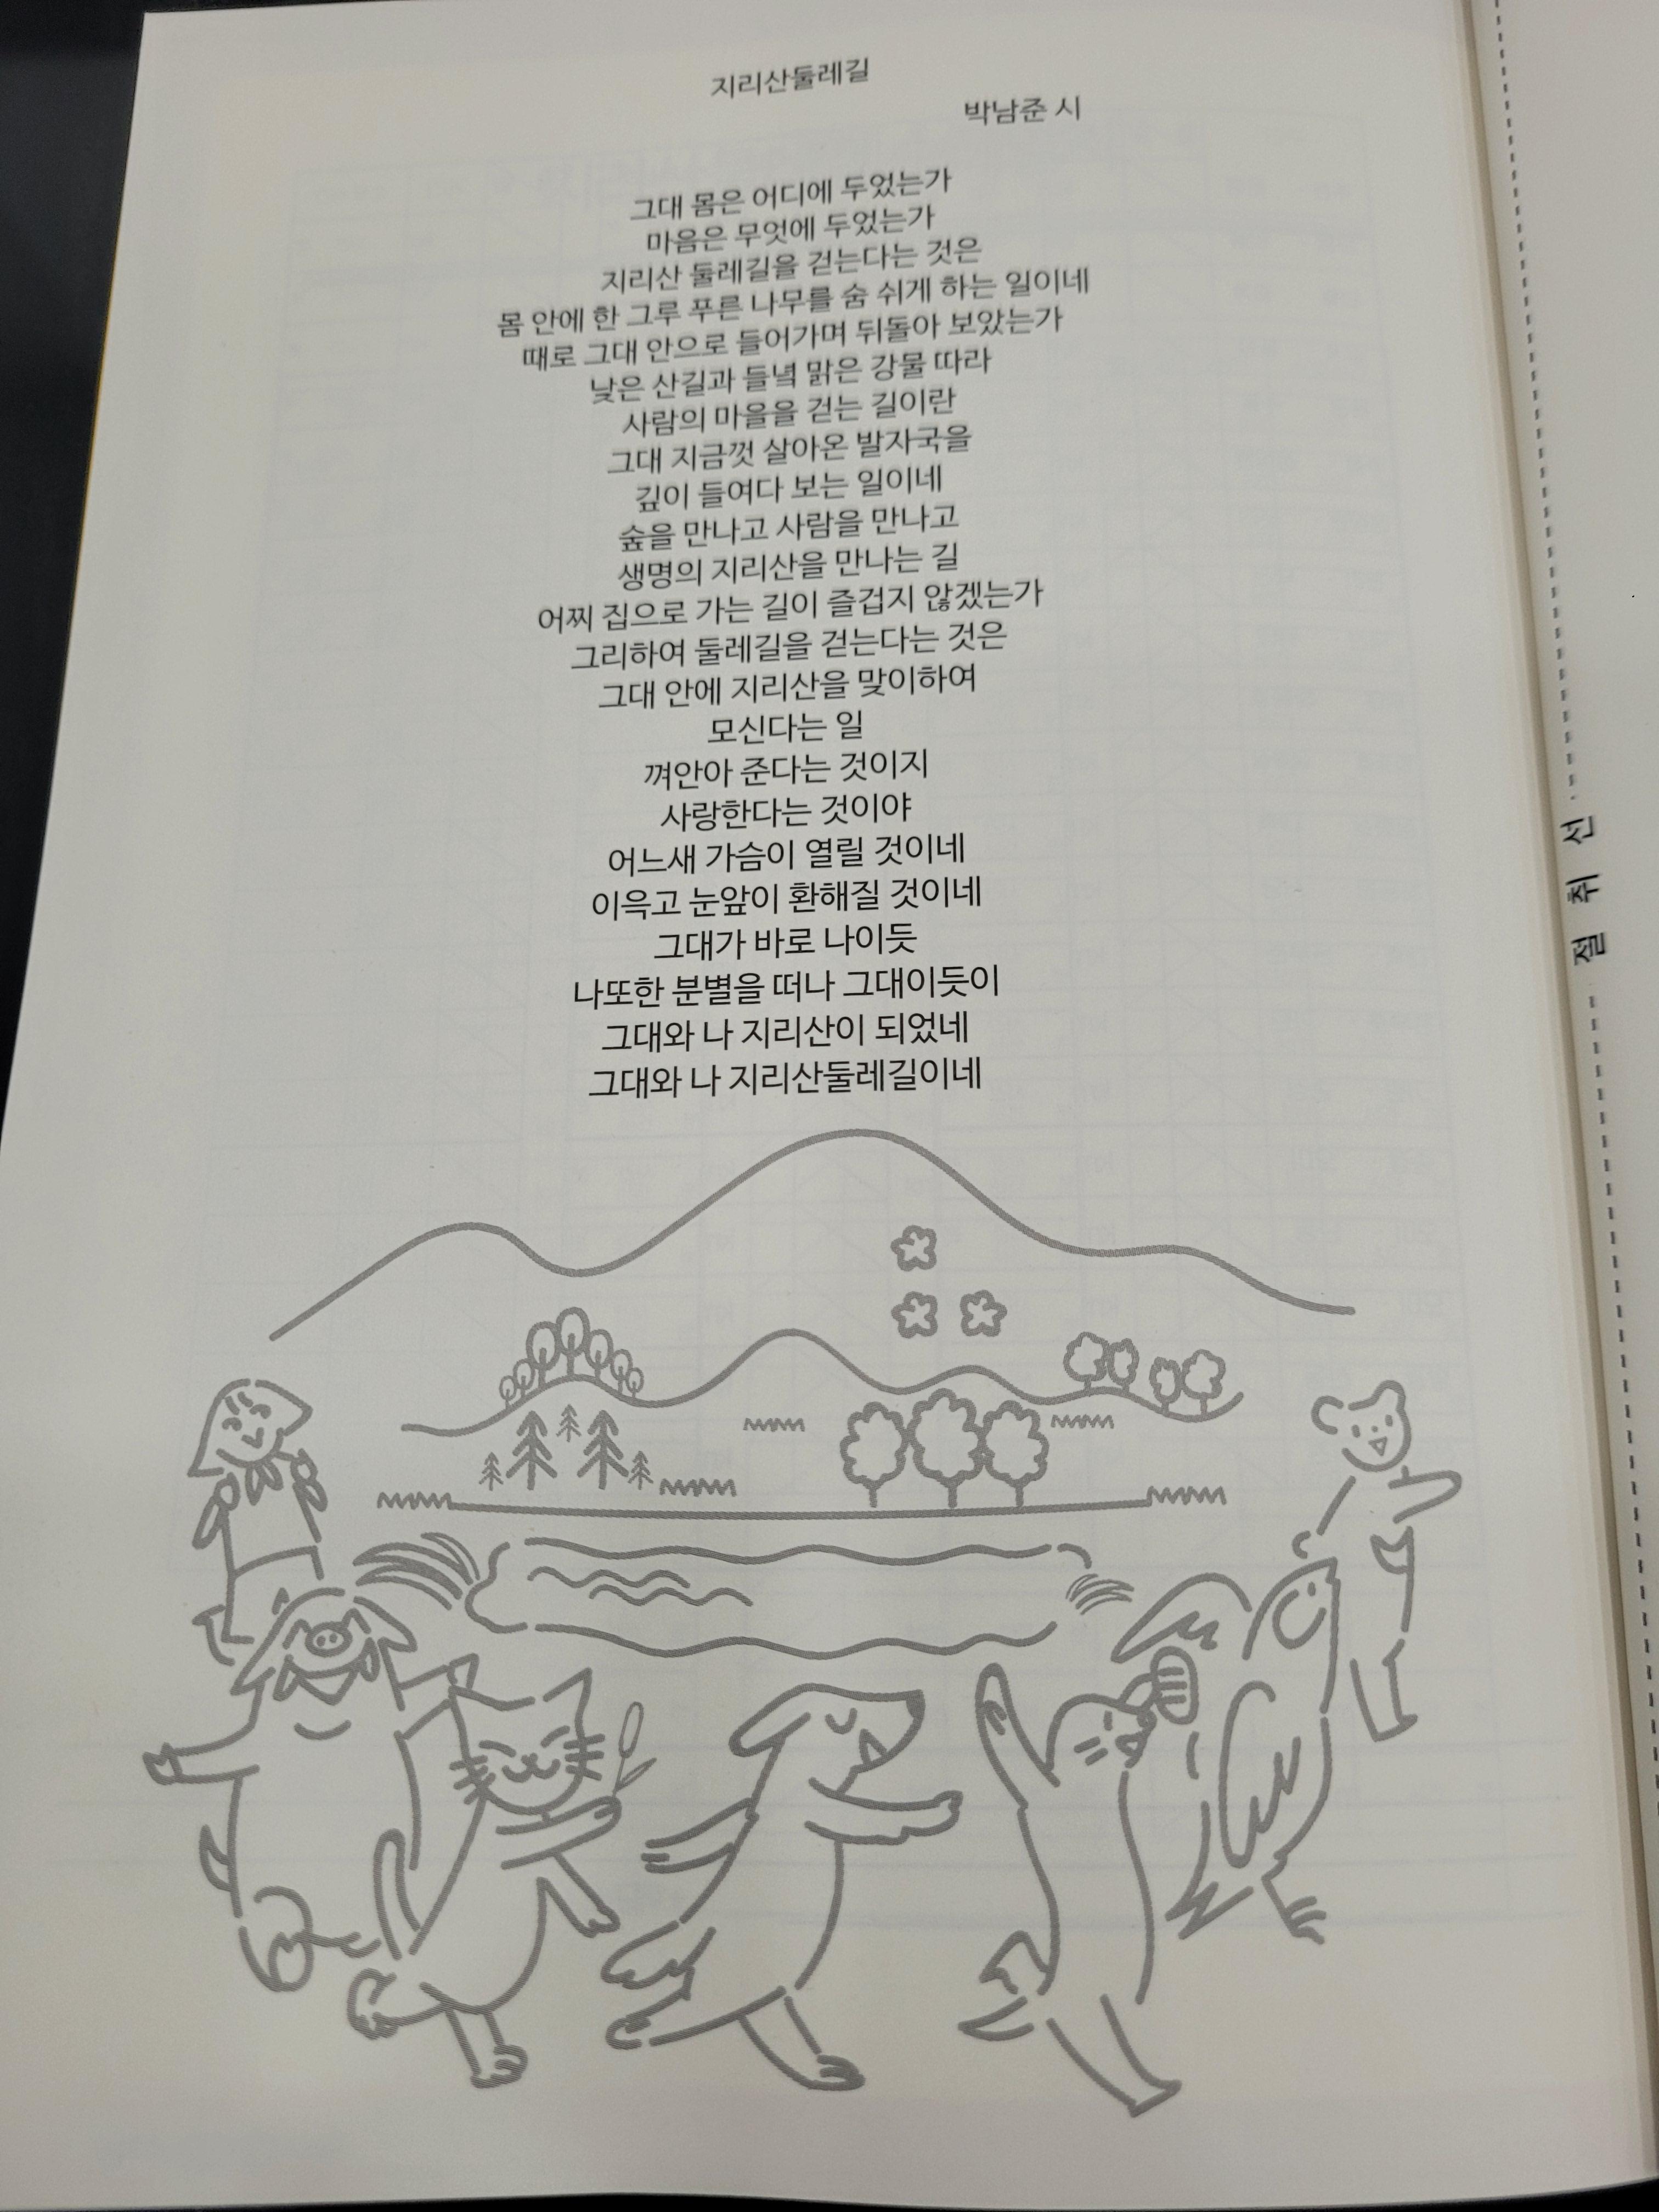 지리산둘레길
박남준 시
그대 몸은 어디에 두었는가
마음은 무엇에 두었는가
지리산 둘레길을 걷는다는 것은
몸 안에 한 그루 푸른 나무를 숨 쉬게 하는 일이네
때로 그대 안으로 들어가며 뒤돌아 보았는가
낮은 산길과 들녘 맑은 강물 따라
사람의 마을을 걷는 길이란
그대 지금껏 살아온 발자국을
깊이 들여다 보는 일이네
숲을 만나고 사람을 만나고
생명의 지리산을 만나는 길
어찌 집으로 가는 길이 즐겁지 않겠는가
그리하여 둘레길을 걷는다는 것은
그대 안에 지리산을 맞이하여
모신다는 일
껴안아 준다는 것이지
사랑한다는 것이야
어느새 가슴이 열릴 것이네
이윽고 눈앞이 환해질 것이네
그대가 바로 나이듯
나또한 분별을 떠나 그대이듯이
그대와 나 지리산이 되었네
그대와 나 지리산둘레길이네
절 취 선